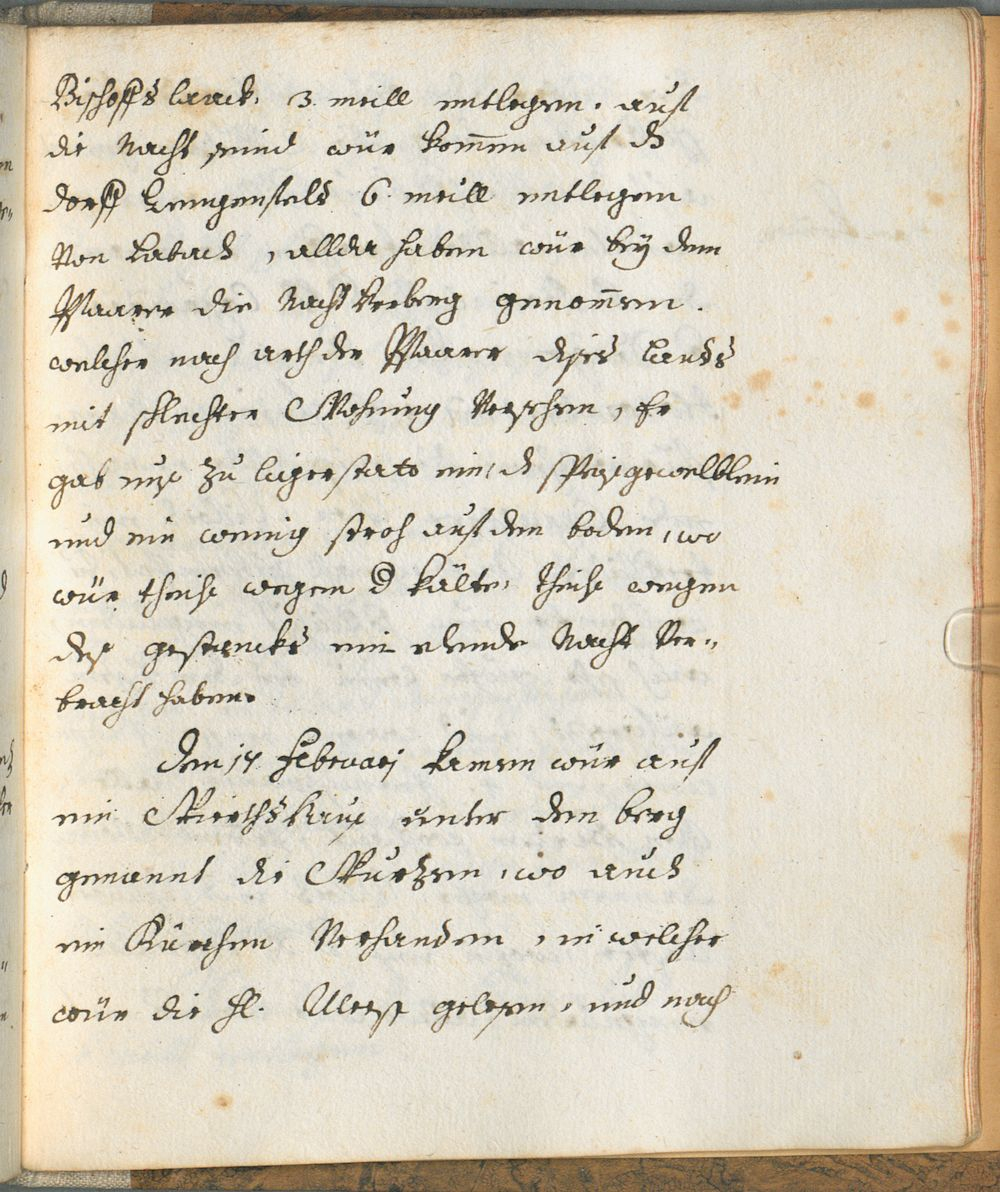 Bischoffs Laack, 3. meill entlegen. auf
die Nacht seind wür kommen auf ds
dorff Lengenfeld 6 meill entlegen
Von Labach, allda haben wür bey dem
Pfaarer die Nacht herberg genommen.
welcher nach arth der Pfaarer dises Lands
mit schlechter Wohnung Versehen, Er
gab unß zu ligerstatt ein, d speißgewelblein
und ein wenig stroh auf dem boden, wo
wür theilß wegen d kälte, theilß wegen
deß gestancks ein elende Nacht Ver-
bracht haben.
Den 14 februarj kamen wür auf
ein Wierthshauß unter dem berg
genannt die Wurtzen, wo auch
ein Kürchen Verhanden, in welcher
wür die hl. Meeß gelesen, und nach